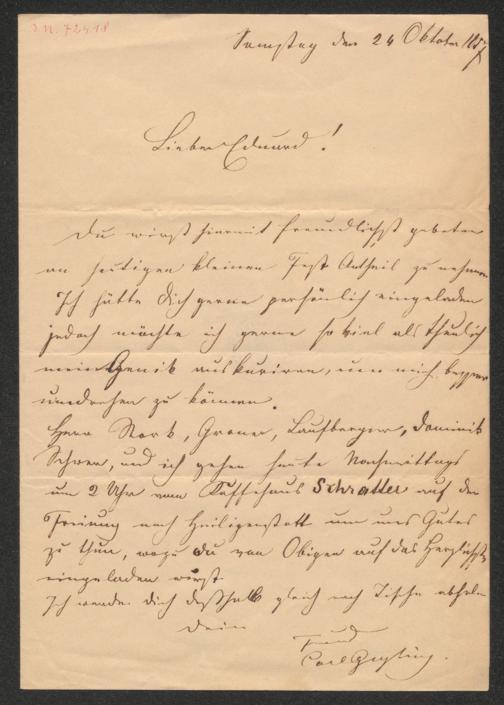 I.N. 72418
Samstag den 24 Oktober 1857
Lieber Eduard!
Du wirst hiermit freundlichst gebeten
an heutigen kleinen Fest Antheil zu nehmen
Ich hätte Dich gerne persönlich eingeladen
jedoch möchte ich gerne so viel als thunlich
mein Genik auskuriren, um mich besser
umdrehen zu können.
Herr Stork, Groner, Laufberger, Dominik
Schren, und ich gehen heute Nachmittags
um 2 Uhr vom Kaffehaus Schratter auf der
Freiung nach Heiligenstatt um uns Gutes
zu thun, wozu Du von Obigen auf das Herzlichste
eingeladen wirst
Ich werde Dich deßhalb gleich nach Tische abholen
Dein
Freund
Carl Geyling.